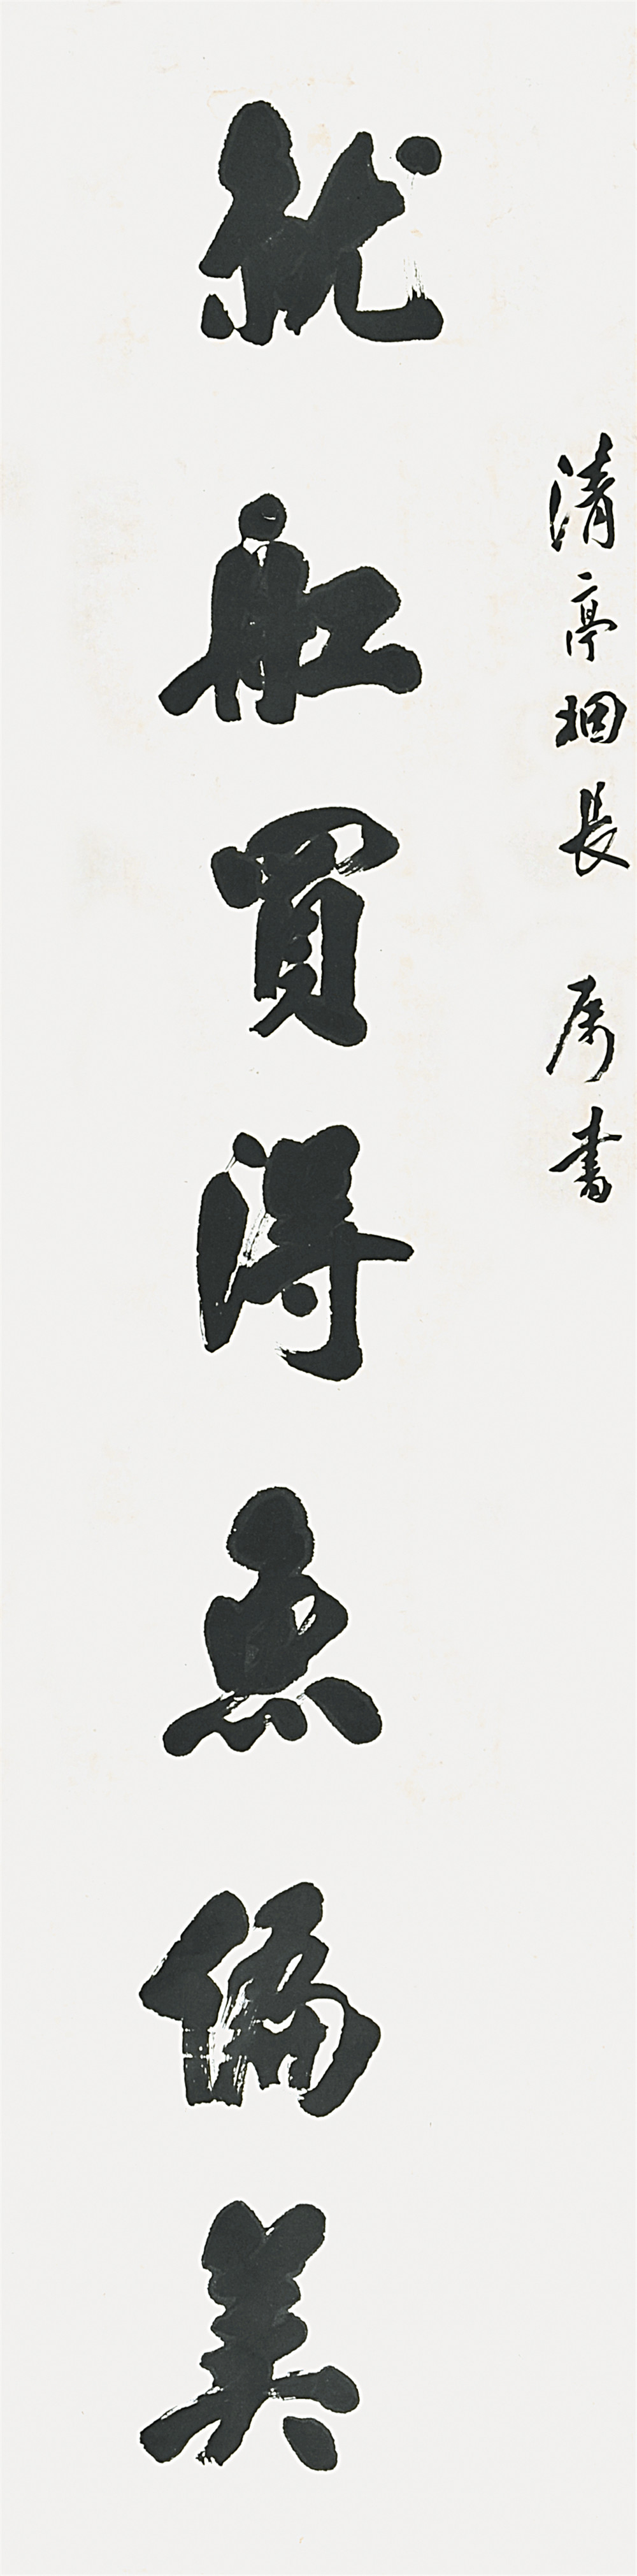 清亭姻長 属書
就舡買得魚偏美